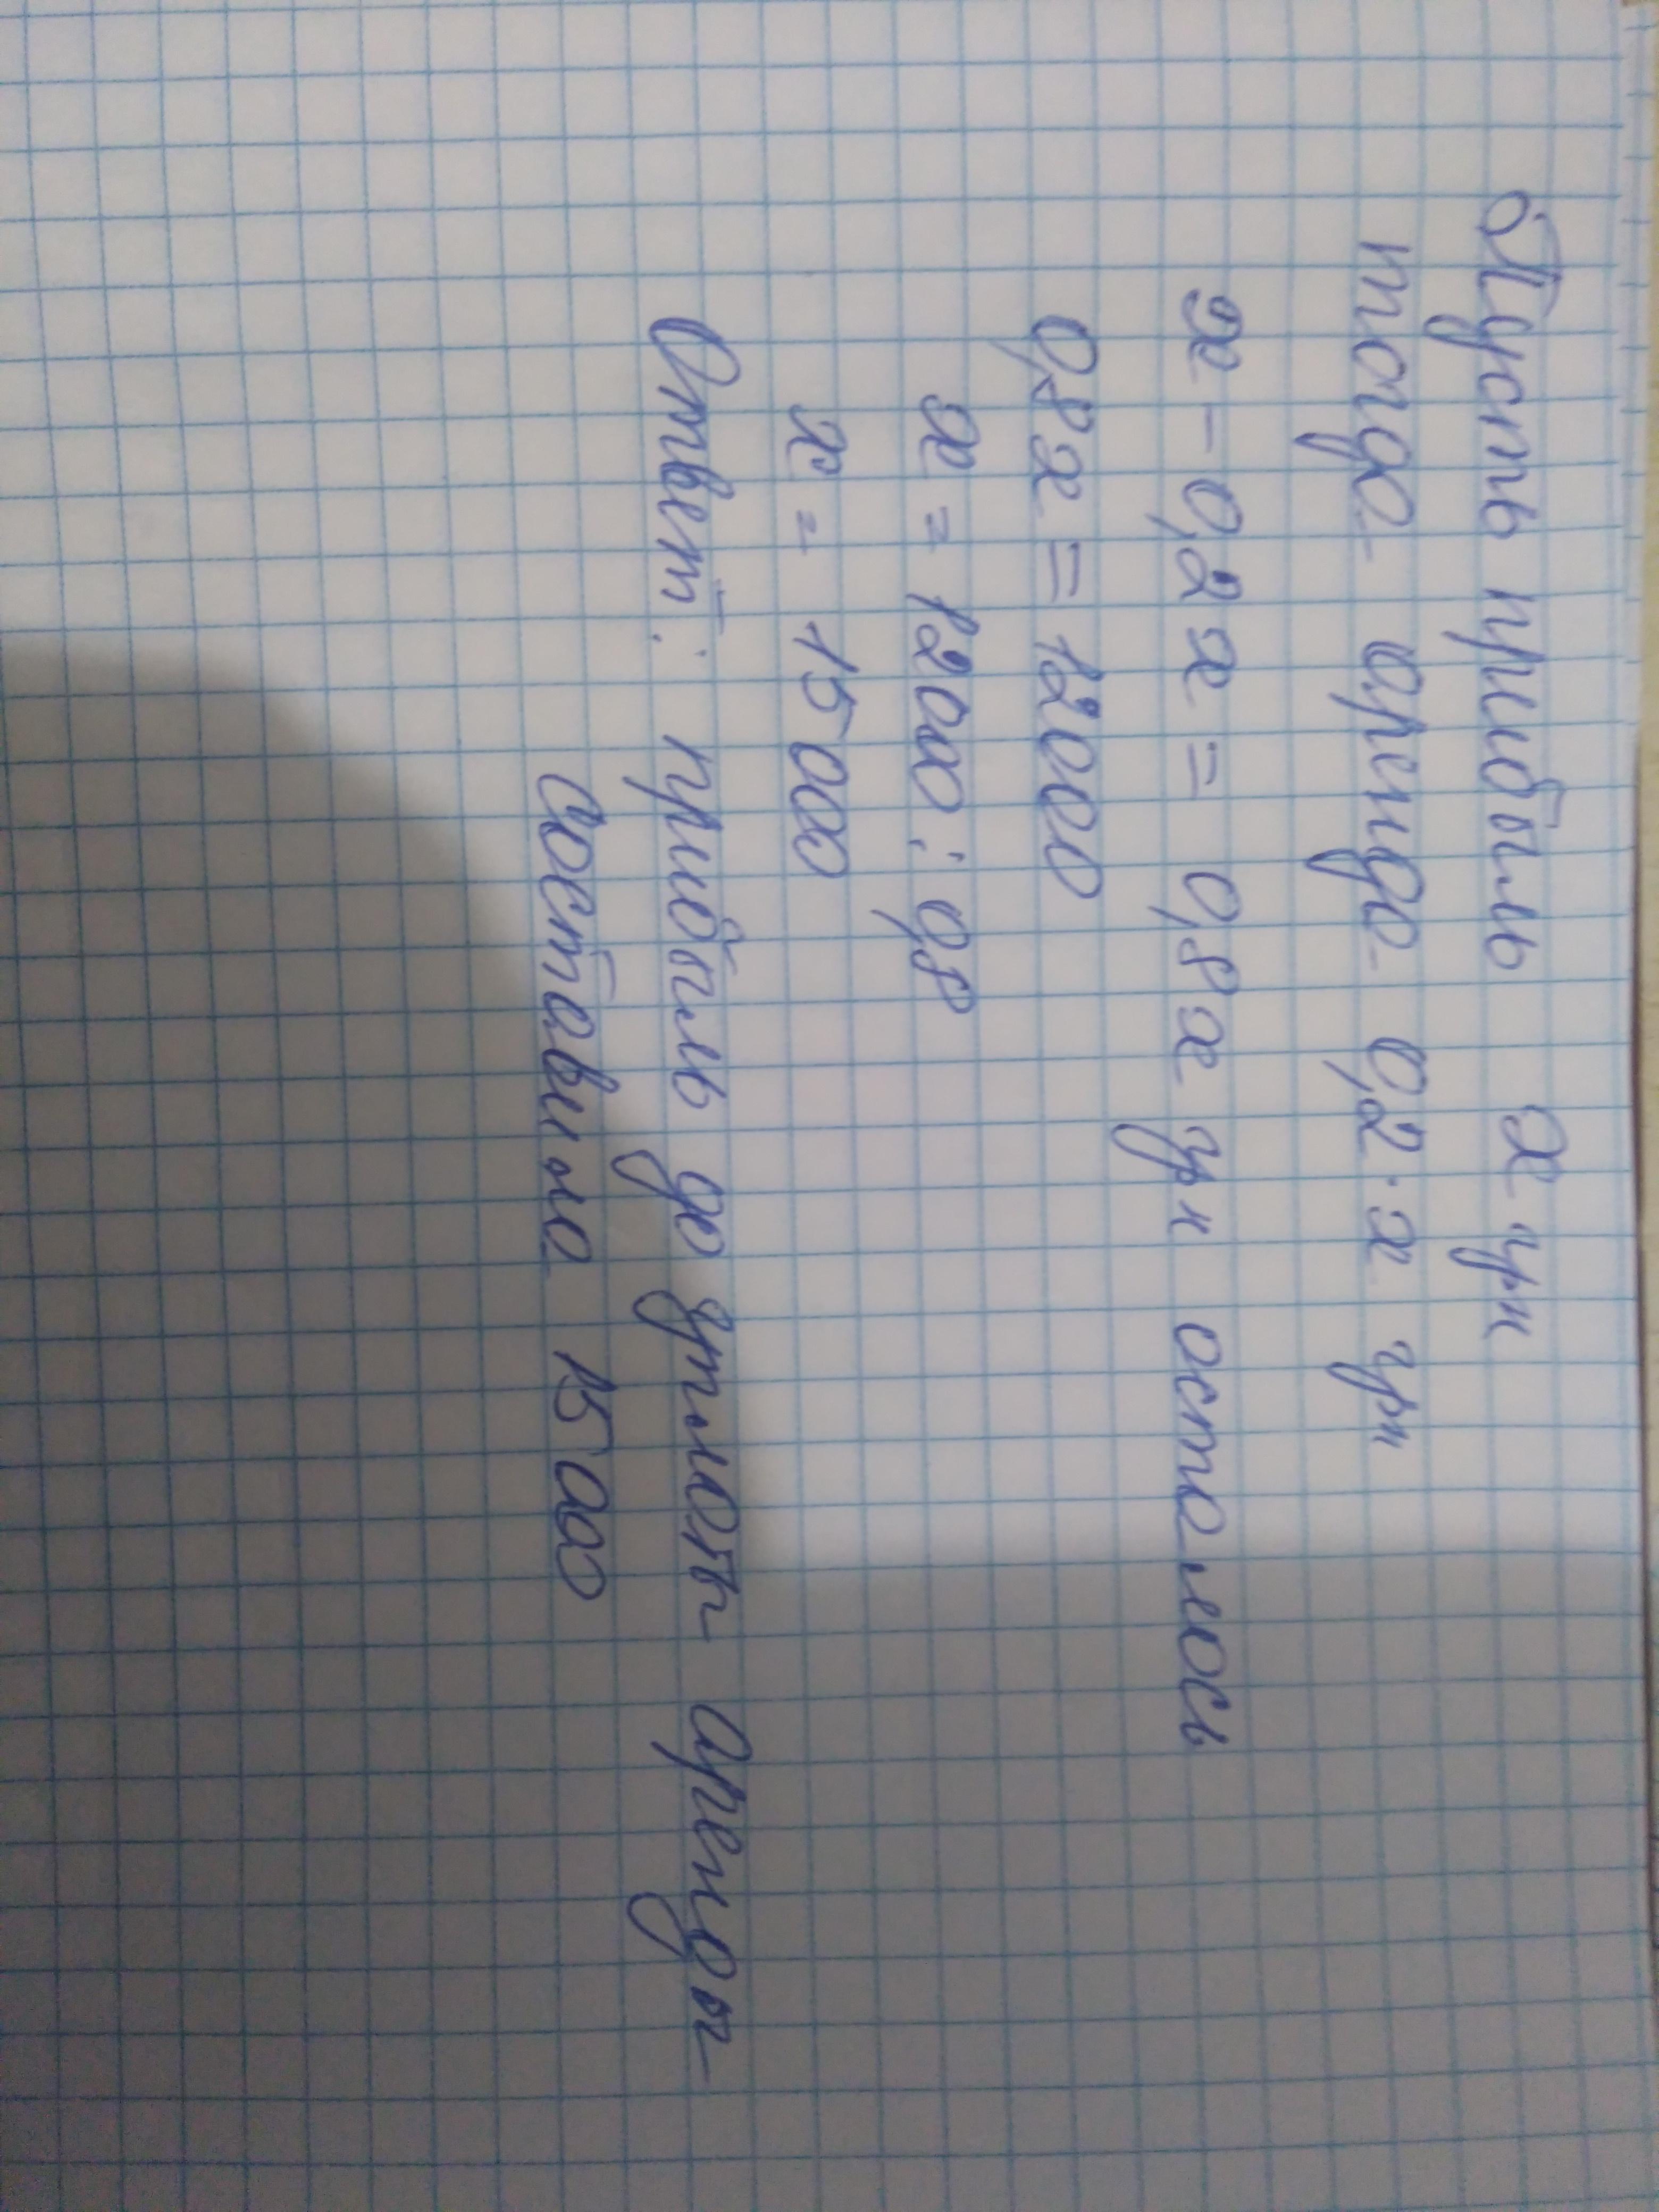 Пусть прибыль х грн
тогда аренда 0,2·х грн
х - 0,2 х = 0,8 х грн осталось
0,8 х = 12000
х = 12000 : 0,8
х = 15 000
Ответ: прибыль до уплаты аренды
составила 15 000